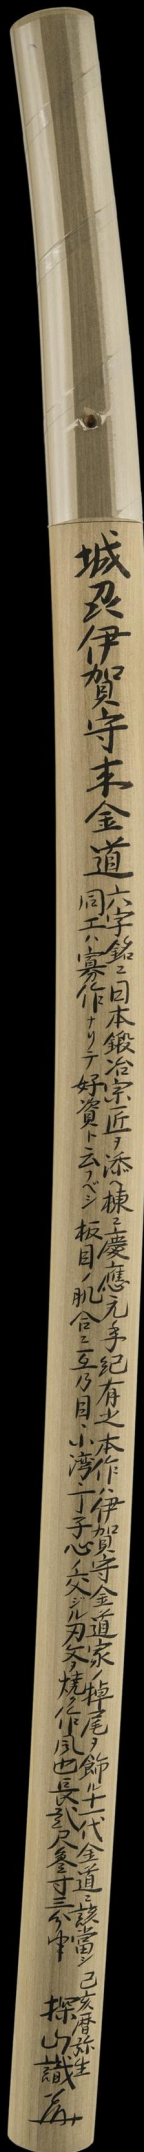 城刕伊賀守末金道
六字銘ニ日本鍛冶宗匠ヲ添ヘ棟ニ慶應元年紀有之本作ハ伊賀守金道家ノ掉尾ヲ飾ル十一代金道ニ該當シ
同工ハ寡作ナリテ好資ト云フベシ 板目ノ肌合ニ互乃目、小湾、丁子心ノ交ジル刃文ヲ焼ク作風也長弐尺参寸三分半
己亥暦弥生
探山識